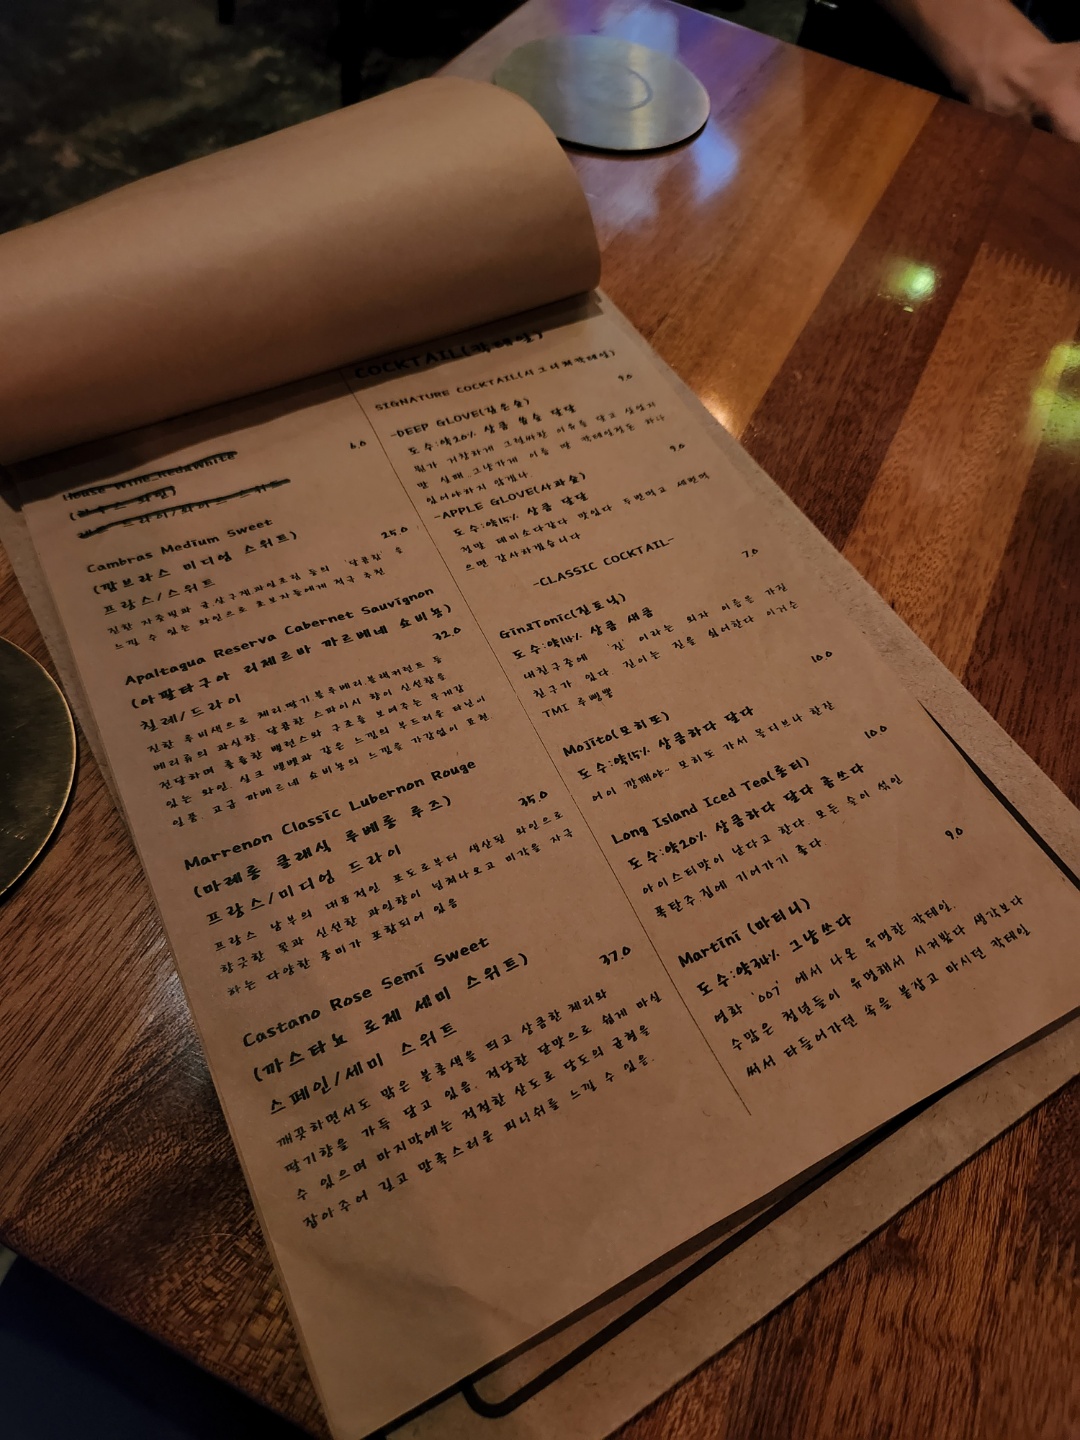 House Wine_Red&White
6.0
(하우스와인)
레드_드라이/화이트_스위트
Cambras Medium Sweet
(깜브라스 미디엄 스위트)
25.0
프랑스/스위트
느낄 수 있는 와인으로 초보자들에게 적극 추천
Apaltagua Reserva Cabernet Sauvignon
(아팔타구아 리제르바 까르베네 쇼비뇽)
32.0
칠레/드라이
진한 루비색으로 체리,딸기,블루베리,블랙커런트 등
베리류의 과실향, 달콤한 스파이시 향이 신선함을
전달하며 훌륭한 밸런스와 구조를 보여주는 무게감
있는 와인. 실크 벨벳과 같은 느낌의 부드러운 타닌이
일품. 고급 까베르네 쇼비뇽의 느낌을 가감없이 표현
Marrenon Classic Lubernon Rouge
(마레농 클래식 루베롱 루즈)
35.0
프랑스/미디엄 드라이
프랑스 남부의 대표적인 포도로부터 생산된 와인으로
향긋한 꽃과 신선한 과일향이 넘쳐나오고 미각을 자극
하는 다양한 풍미가 포함되어 있음
Castano Rose Semi Sweet
(까스타뇨 로제 세미 스위트)
37.0
스페인/세미 스위트
깨끗하면서도 맑은 분홍색을 띄고 상큼한 체리와
딸기향을 가득 담고 있음. 적당한 단맛으로 쉽게 마실
수 있으며 마지막에는 적절한 산도로 당도의 균형을
잡아주어 길고 만족스러운 피니쉬를 느낄 수 있음.
COCKTAIL(칵테일)
SIGNATURE COCKTAIL(시그니처칵테일)
9.0
-DEEP GLOVE(깊은숲)
도수:약20% 상큼 씁슬 달달
뭔가 거창하게 그럴싸한 이름을 달고 싶었지
만 실패. 그냥가게 이름 딴 칵테일정돈 하나
있어야하지 않겠나
9.0
-APPLE GLOVE(사과숲)
도수:약15% 상큼 달달
정말 데미소다같다 맛있다 두번먹고 세번먹
으면 감사하겠습니다
-CLASSIC COCKTAIL-
7.0
Gin&Tonic(진토닉)
도수:약14% 상큼 새콤
내친구중에 '진' 이라는 외자 이름을 가진
친구가 있다 진이는 진을 싫어한다 이거슨
TMI 주뺑뺑
10.0
Mojito(모히또)
도수:약15% 상큼하다 달다
어이 깡패야~ 모히도 가서 몰디브나 한잔
10.0
Long Island Iced Tea(롱티)
도수:약20% 상큼하다 달다 좀쓰다
아이스티맛이 난다고 한다. 모든 술이 섞인
폭탄주.집에 기어가기 좋다.
9.0
Martini (마티니)
도수:약34% 그냥쓰다
영화 '007' 에서 나온 유명한 칵테일.
수많은 청년들이 유명해서 시켜봤다 생각보다
써서 타들어가던 속을 붙잡고 마시던 칵테일